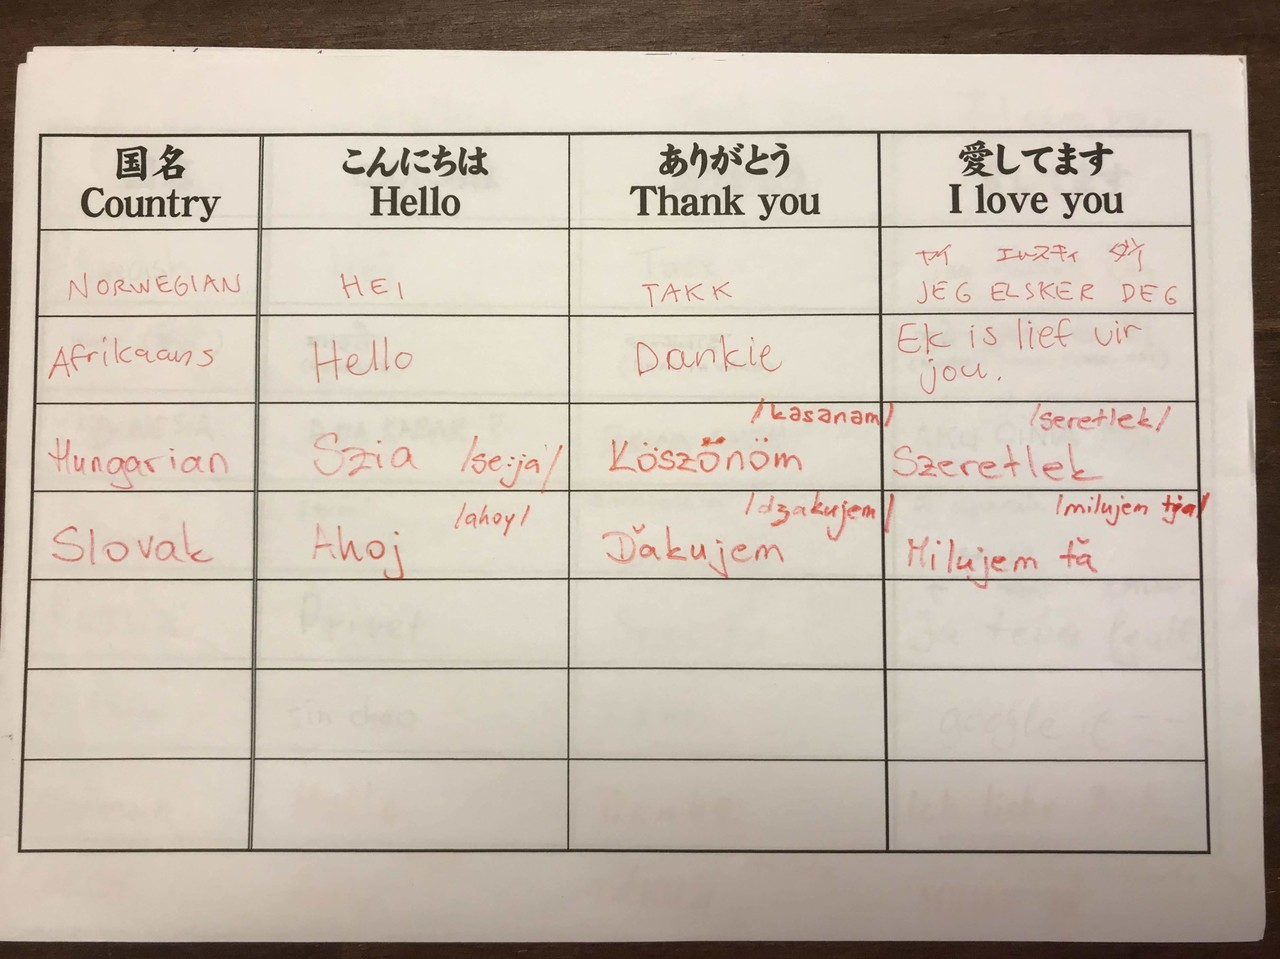 国名 こんにちは ありがとう 愛してます
Country Hello Thank you I love you
ヤイ エルスティ ダイ
NORWEGIAN HEI TAKK JEG ELSKER DEG
Afrikaans Hello Dankie Ek is lief vir
jou.
/kasanam/ /seretlek/
Hungarian Szia /se:ja/ Köszőnöm Szeretlek
/ahoy/ /dzakujem/ /milujem tja/
Slovak Ahoj Ďakujem Milujem tă